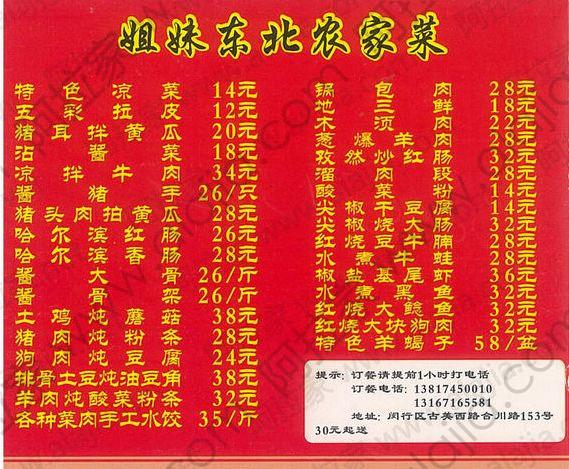 姐妹东北农家菜
特色凉菜 14元
五彩拉皮 12元
猪耳拌黄瓜 20元
沾酱菜 18元
凉拌牛肉 34元
酱猪手 26/只
猪头肉拍黄瓜 28元
哈尔滨红肠 26元
哈尔滨香肠 28元
酱大骨 26/斤
酱骨架 26/斤
土鸡炖蘑菇 38元
猪肉炖粉条 28元
狗肉炖豆腐 24元
排骨土豆炖油豆角 38元
羊肉炖酸菜粉条 32元
各种菜肉手工水饺 35/斤
锅包肉 28元
地三鲜 18元
木须肉 22元
葱爆羊肉 28元
孜然炒红肠 32元
溜肉段 28元
酸菜粉 14元
尖椒干豆腐 14元
尖椒大肠 32元
红烧牛腩 28元
水煮牛蛙 28元
椒盐基尾虾 36元
水煮黑鱼 32元
红烧大鲶鱼 32元
红烧大块狗肉 32元
特色羊蝎子 58/盆
提示: 订餐请提前1小时打电话
订餐电话: 13817450010
13167165581
地址: 闵行区古美西路合川路153号
30元起送